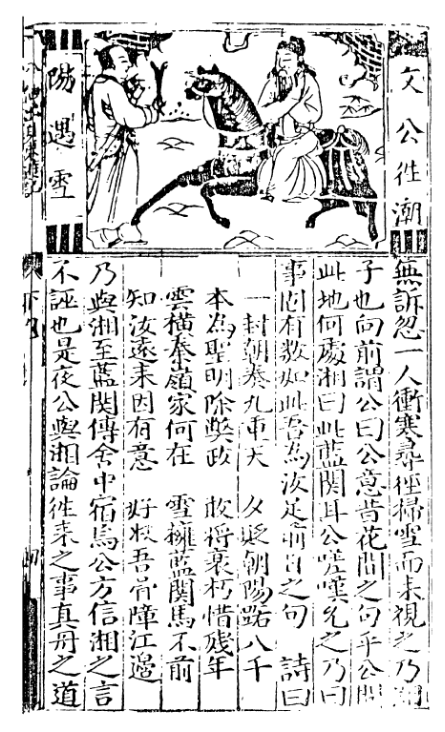 文公徃潮
陽遇雪
無訴忽一人衝寒尋徑掃雪而来視之乃湘
子也向前謂公曰公意昔花間之句乎公問
此地何處湘曰此藍関耳公嗟嘆久之乃曰
事固有数如此吾為汝足前日之句 詩曰
一封朝奏九重天 夕貶朝陽路八千
本為聖明除獘政 敢將衰朽惜殘年
雲橫秦嶺家何在 雪擁藍関馬不前
知汝遠来因有意 好收吾骨障江邉
乃與湘至藍関傳舍中宿焉公方信湘之言
不誣也是夜公與湘論徃来之事真丹之道